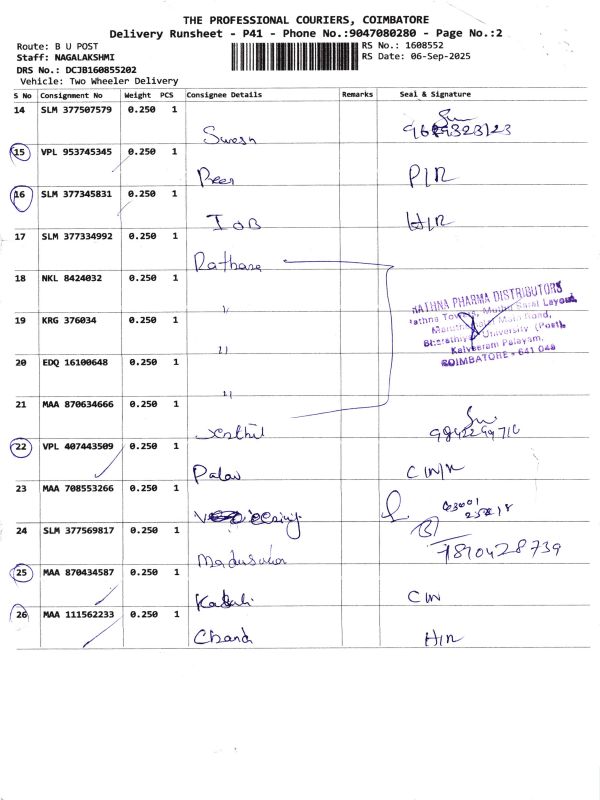 THE PROFESSIONAL COURIERS, COIMBATORE
Delivery Runsheet - P41 - Phone No.:9047080280 - Page No.:2
Route: B U POST
RS No.: 1608552
Staff: NAGALAKSHMI
RS Date: 06-Sep-2025
DRS No.: DCJB160855202
Vehicle: Two Wheeler Delivery
S No Consignment No Weight PCS Consignee Details Remarks Seal & Signature
14 SLM 377507579 0.250 1
Suresh
15 VPL 953745345 0.250 1
Peer P/R
16 SLM 377345831 0.250 1
IOB H/R
17 SLM 377334992 0.250 1
Rathana
18 NKL 8424032 0.250 1
"
19 KRG 376034 0.250 1
"
20 EDQ 16100648 0.250 1
"
RATHNA PHARMA DISTRIBUTORS
Bharathiyar University (Post),
Kalveeram Palayam,
COIMBATORE - 641 046
21 MAA 870634666 0.250 1
Senthil
22 VPL 407443509 0.250 1
Palav
23 MAA 708553266 0.250 1
24 SLM 377569817 0.250 1
7810428739
25 MAA 870434587 0.250 1
26 MAA 111562233 0.250 1
Chand H/R